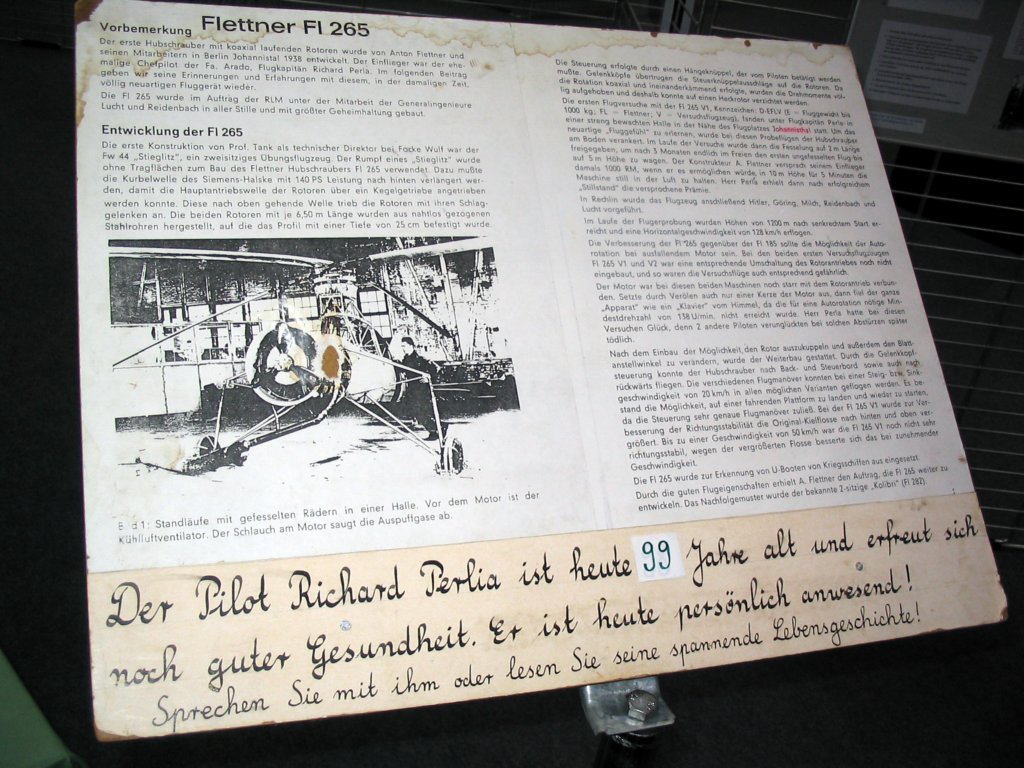 Flettner Fl 265
Vorbemerkung
Der erste Hubschrauber mit koaxial laufenden Rotoren wurde von Anton Flettner und
seinen Mitarbeitern in Berlin Johannistal 1938 entwickelt. Der Einflieger war der ehe-
malige Chefpilot der Fa. Arado, Flugkapitän Richard Perlia. Im folgenden Beitrag
geben wir seine Erinnerungen und Erfahrungen mit diesem, in der damaligen Zeit,
völlig neuartigen Fluggerät wieder.
Die Fl 265 wurde im Auftrag der RLM unter der Mitarbeit der Generalingenieure
Lucht und Reidenbach in aller Stille und mit größter Geheimhaltung gebaut.
Entwicklung der Fl 265
Die erste Konstruktion von Prof. Tank als technischer Direktor bei Focke Wulf war der
Fw 44 „Stieglitz", ein zweisitziges Übungsflugzeug. Der Rumpf eines „Stieglitz" wurde
ohne Tragflächen zum Bau des Flettner Hubschraubers Fl 265 verwendet. Dazu mußte
die Kurbelwelle des Siemens-Halske mit 140 PS Leistung nach hinten verlängert wer-
den, damit die Hauptantriebswelle der Rotoren über ein Kegelgetriebe angetrieben
werden konnte. Diese nach oben gehende Welle trieb die Rotoren mit ihren Schlag-
gelenken an. Die beiden Rotoren mit je 6,50 m Länge wurden aus nahtlos gezogenen
Stahlrohren hergestellt, auf die das Profil mit einer Tiefe von 25 cm befestigt wurde.
Bild 1: Standläufe mit gefesselten Rädern in einer Halle. Vor dem Motor ist der
Kühlluftventilator. Der Schlauch am Motor saugt die Auspuffgase ab.
Die Steuerung erfolgte durch einen Hängeknüppel, der vom Piloten betätigt werden
mußte. Gelenkköpfe übertrugen die Steuerknüppelausschläge auf die Rotoren. Da
die Rotation koaxial und ineinanderkämmend erfolgte, wurden die Drehmomente völ-
lig aufgehoben und deshalb konnte auf einen Heckrotor verzichtet werden.
Die ersten Flugversuche mit der Fl 265 V1, Kennzeichen: D-EFLV (E – Fluggewicht bis
1000 kg; FL – Flettner; V – Versuchsflugzeug), fanden unter Flugkapitän Perle in
einer streng bewachten Halle in der Nähe des Flugplatzes Johannisthal statt. Um das
neuartige „Fluggefühl" zu erlernen, wurde bei diesen Probeflügen der Hubschrauber
am Boden verankert. Im Laufe der Versuche wurde dann die Fesselung auf 2 m Länge
freigegeben, um nach 3 Monaten endlich im Freien den ersten ungefesselten Flug bis
auf 5 m Höhe zu wagen. Der Konstrukteur A. Flettner versprach seinem Einflieger
damals 1000 RM, wenn er es ermöglichen würde, in 10 m Höhe für 5 Minuten die
Maschine still in der Luft zu halten. Herr Perla erhielt dann nach erfolgreichem
„Stillstand" die versprochene Prämie.
In Rechlin wurde das Flugzeug anschließend Hitler, Göring, Milch, Reidenbach und
Lucht vorgeführt.
Im Laufe der Flugerprobung wurden Höhen von 1200 m nach senkrechtem Start er-
reicht und eine Horizontalgeschwindigkeit von 128 km/h erflogen.
Die Verbesserung der Fl 265 gegenüber der Fl 185 sollte die Möglichkeit der Auto-
rotation bei ausfallendem Motor sein. Bei den beiden ersten Versuchsflugzeugen
Fl 265 V1 und V2 war eine entsprechende Umschaltung des Rotorantriebes noch nicht
eingebaut, und so waren die Versuchsflüge auch entsprechend gefährlich.
Der Motor war bei diesen beiden Maschinen noch starr mit dem Rotorantrieb verbun-
den. Setzte durch Verölen auch nur einer Kerze der Motor aus, dann fiel der ganze
„Apparat" wie ein „Klavier" vom Himmel, da die für eine Autorotation nötige Min-
destdrehzahl von 138 U/min. nicht erreicht wurde. Herr Perla hatte bei diesen
Versuchen Glück, denn 2 andere Piloten verunglückten bei solchen Abstürzen später
tödlich.
Nach dem Einbau der Möglichkeit, den Rotor auszukuppeln und außerdem den Blatt-
anstellwinkel zu verändern, wurde der Weiterbau gestattet. Durch die Gelenkkopf-
steuerung konnte der Hubschrauber nach Back- und Steuerbord sowie auch nach
rückwärts fliegen. Die verschiedenen Flugmanöver konnten bei einer Steig- bzw. Sink-
geschwindigkeit von 20 km/h in allen möglichen Varianten geflogen werden. Es be-
stand die Möglichkeit, auf einer fahrenden Plattform zu landen und wieder zu starten,
da die Steuerung sehr genaue Flugmanöver zuließ. Bei der Fl 265 V1 wurde zur Ver-
besserung der Richtungsstabilität die Original-Kielflosse nach hinten und oben ver-
größert. Bis zu einer Geschwindigkeit von 50 km/h war die Fl 265 V1 noch nicht sehr
richtungsstabil, wegen der vergrößerten Flosse besserte sich das bei zunehmender
Geschwindigkeit.
Die Fl 265 wurde zur Erkennung von U-Booten von Kriegsschiffen aus eingesetzt.
Durch die guten Flugeigenschaften erhielt A. Flettner den Auftrag, die Fl 265 weiter zu
entwickeln. Das Nachfolgemuster wurde der bekannte 2-sitzige „Kolibri" (Fl 282).
Der Pilot Richard Perlia ist heute 99 Jahre alt und erfreut sich
noch guter Gesundheit. Er ist heute persönlich anwesend!
Sprechen Sie mit ihm oder lesen Sie seine spannende Lebensgeschichte!